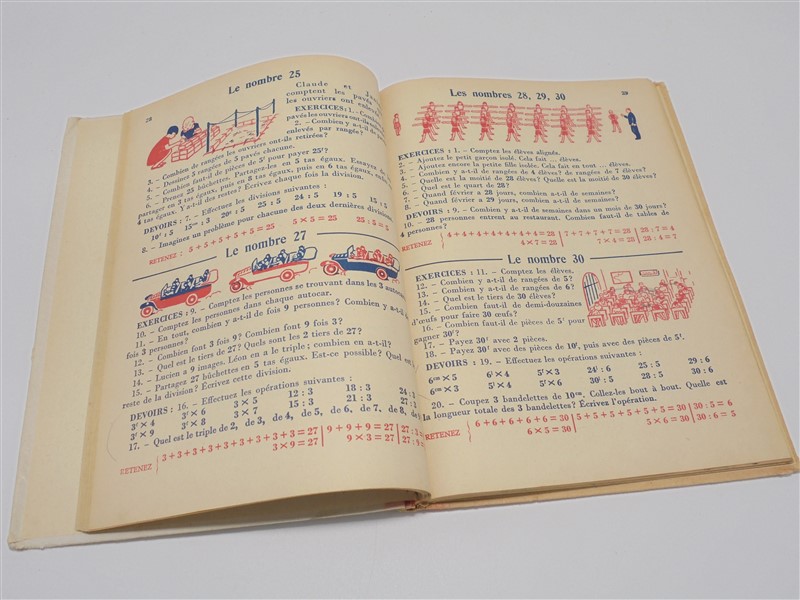 28
Le nombre 25
Claude et
comptent les pavés
les ouvriers ont enlevés
EXERCICES : 1. - Combien
pavés les ouvriers ont-ils
2. - Combien y a-t-il de
enlevés par rangée?
3. - Combien de rangées les ouvriers ont-ils retirées?
4. - Dessinez 5 rangées de 5 pavés chacune.
5. - Combien faut-il de pièces de 5f pour payer 25f?
6. - Prenez 25 bûchettes. Partagez-les en 5 tas égaux. Essayez de
partager en 3 tas égaux, puis en 8 tas égaux, puis en 6 tas égaux,
4 tas égaux. Y a-t-il des restes? Écrivez chaque fois la division.
DEVOIRS : 7. - Effectuez les divisions suivantes :
10f : 5 15m : 3 20f : 5 25 : 5 24 : 5 19 : 5 15 :
8. - Imaginez un problème pour chacune des deux dernières divisions
RETENEZ 5 + 5 + 5 + 5 + 5 = 25 5 × 5 = 25 25 : 5 =
Le nombre 27
EXERCICES : 9. - Comptez les personnes se trouvant dans les 3 autocars
10. - Comptez les personnes dans chaque autocar.
11. - En tout, combien y a-t-il de fois 9 personnes? Combien y a-t-il de
fois 3 personnes?
12. - Combien font 3 fois 9? Combien font 9 fois 3?
13. - Quel est le tiers de 27? Quels sont les 2 tiers de 27?
14. - Lucien a 9 images. Léon en a le triple; combien en a-t-il?
15. - Partagez 27 bûchettes en 5 tas égaux. Est-ce possible? Quel est
reste de la division? Écrivez cette division.
DEVOIRS : 16. - Effectuez les opérations suivantes :
3f × 4 3f × 6 3 × 5 12 : 3 18 : 3 24 : 3
3f × 9 3f × 8 3 × 7 15 : 3 21 : 3 27 :
17. - Quel est le triple de 2, de 3, de 4, de 5, de 6, de 7, de 8,
RETENEZ 3 + 3 + 3 + 3 + 3 + 3 + 3 + 3 + 3 = 27 9 + 9 + 9 = 27 27 :
3 × 9 = 27 9 × 3 = 27 27 :
Les nombres 28, 29, 30
29
EXERCICES : 1. - Comptez les élèves alignés.
2. - Ajoutez le petit garçon isolé. Cela fait ... élèves.
3. - Ajoutez encore la petite fille isolée. Cela fait en tout ... élèves.
4. - Combien y a-t-il de rangées de 4 élèves? de rangées de 7 élèves?
5. - Quelle est la moitié de 28 élèves? Quelle est la moitié de 30 élèves?
6. - Quel est le quart de 28?
7. - Quand février a 28 jours, combien a-t-il de semaines?
8. - Quand février a 29 jours, combien a-t-il de semaines?
DEVOIRS : 9. - Combien y a-t-il de semaines dans un mois de 30 jours?
10. - 28 personnes entrent au restaurant. Combien faut-il de tables de
4 personnes?
RETENEZ 4 + 4 + 4 + 4 + 4 + 4 + 4 = 28 7 + 7 + 7 + 7 = 28 28 : 7 = 4
4 × 7 = 28 7 × 4 = 28 28 : 4 = 7
Le nombre 30
EXERCICES : 11. - Comptez les élèves.
12. - Combien y a-t-il de rangées de 5?
13. - Combien y a-t-il de rangées de 6?
14. - Quel est le tiers de 30 élèves?
15. - Combien faut-il de demi-douzaines
d'œufs pour faire 30 œufs?
16. - Combien faut-il de pièces de 5f pour
gagner 30f?
17. - Payez 30f avec 2 pièces.
18. - Payez 30f avec des pièces de 10f, puis avec des pièces de 5f.
DEVOIRS : 19. - Effectuez les opérations suivantes :
6cm × 5 6f × 4 5f × 3 24f : 6 25 : 5 29 : 6
6cm × 3 5f × 4 5f × 6 30f : 5 28 : 5 30 : 6
20. - Coupez 3 bandelettes de 10cm. Collez-les bout à bout. Quelle est
la longueur totale des 3 bandelettes? Écrivez l'opération.
RETENEZ 6 + 6 + 6 + 6 + 6 = 30 5 + 5 + 5 + 5 + 5 + 5 = 30 30 : 5 = 6
6 × 5 = 30 5 × 6 = 30 30 : 6 = 5